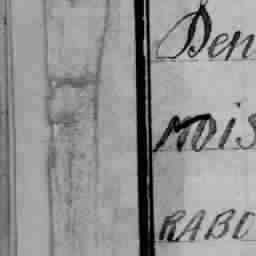 Den
MOIS
RABO